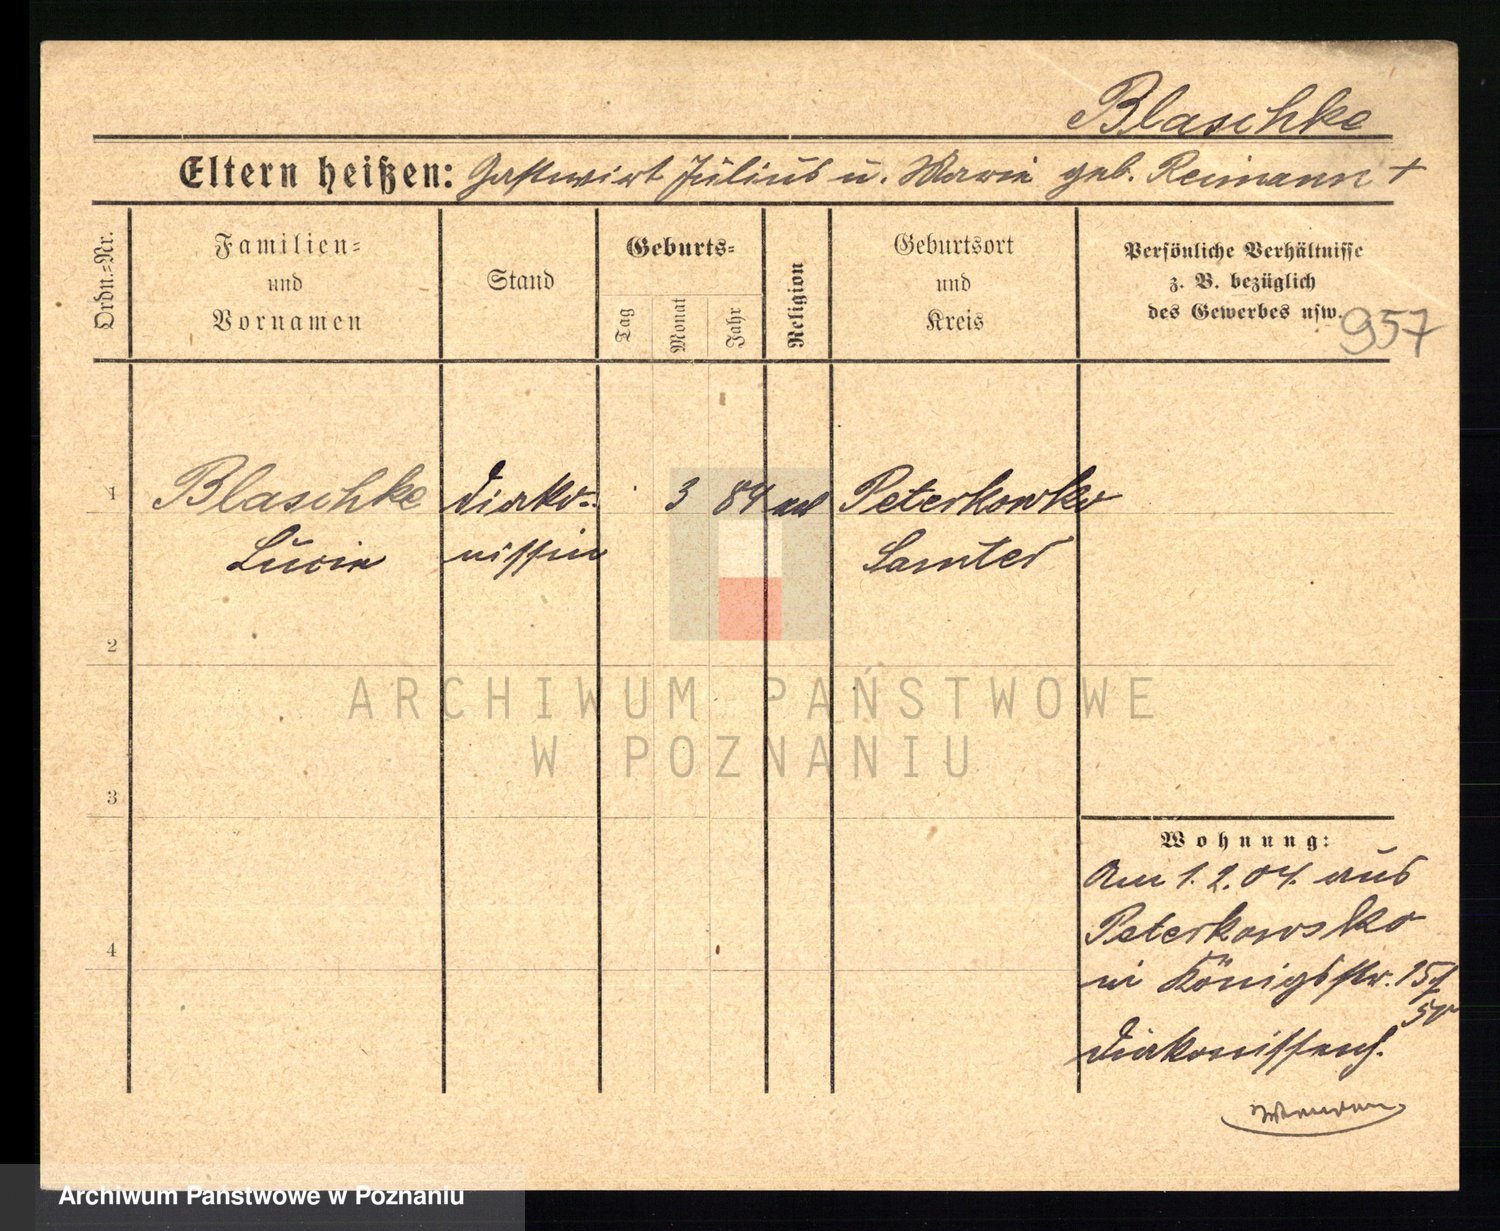 Blaschke
Eltern heißen: Gastwirt Julius u. Marie geb. Reimann +
Ordn.=Nr.
Familien= und Vornamen
Stand
Geburts=
Tag
Monat
Jahr
Religion
Geburtsort und Kreis
Persönliche Verhältnisse
z. B. bezüglich
des Gewerbes usw.
957
1 Blaschke Diako= 3 84 Peterkowko
Lucie nissin Samter
2
3
4
Wohnung:
Am 1. 2. 04. aus
Peterkowsko
in Königsstr. 15
Diakonissenh.
Wenden
ARCHIWUM PAŃSTWOWE
W POZNANIU
Archiwum Państwowe w Poznaniu